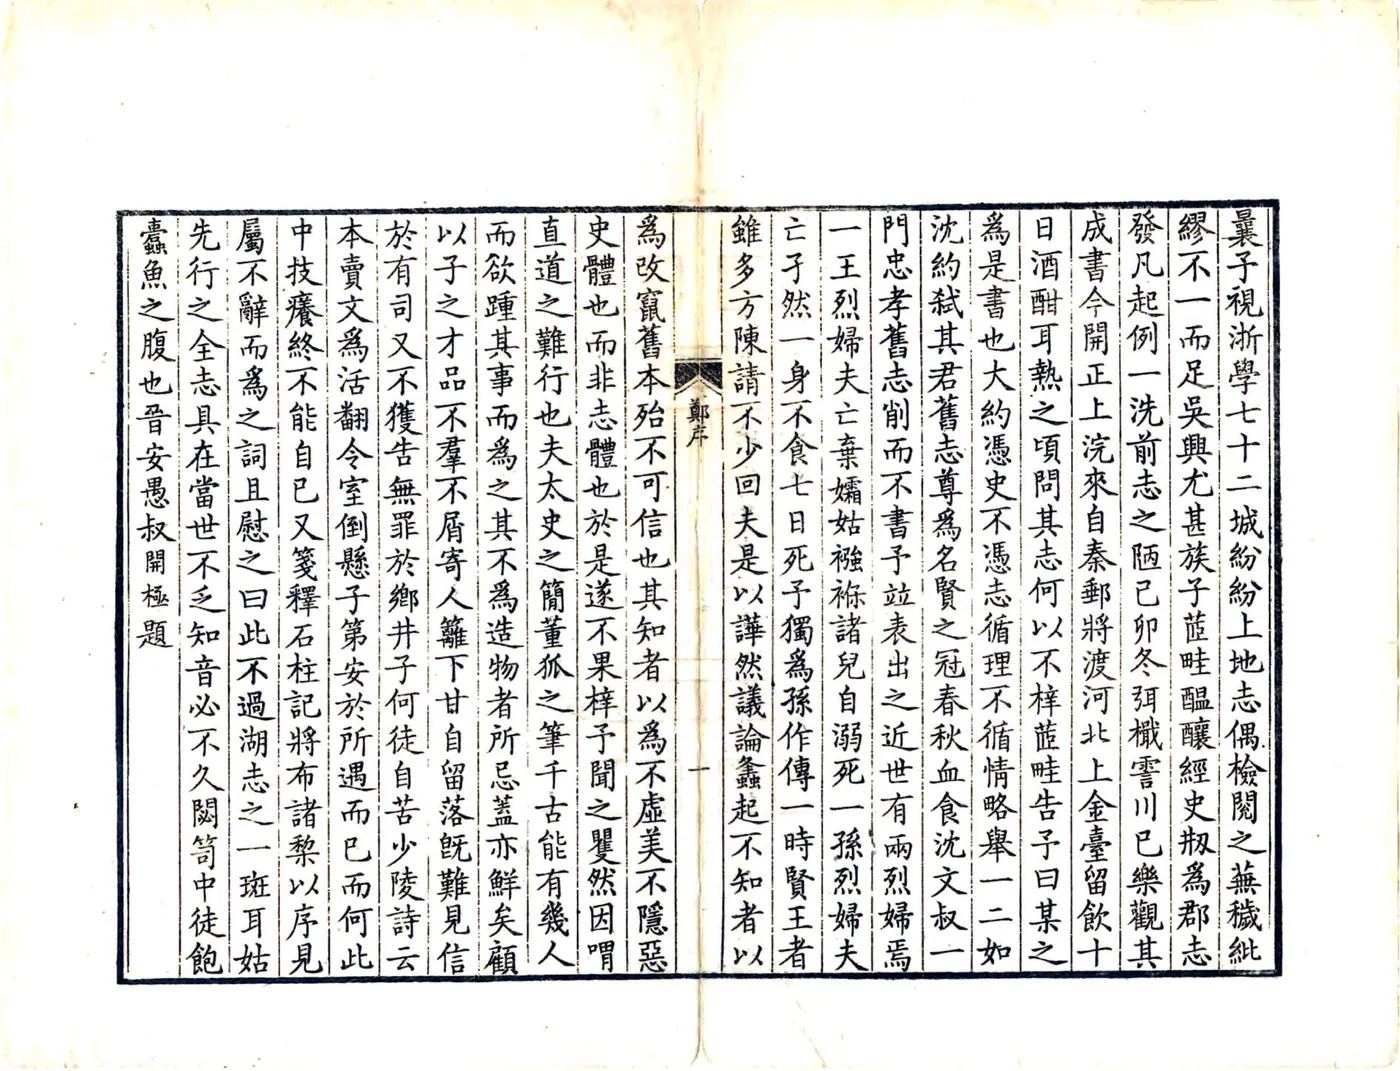 曩予視浙學七十二城紛紛上地志偶檢閱之蕪穢紕
繆不一而足吳興尤甚族子茝畦醖釀經史剏為郡志
發凡起例一洗前志之陋己卯冬弭檝霅川已樂觀其
成書今開正上浣來自秦郵將渡河北上金臺留飲十
日酒酣耳熱之頃問其志何以不梓茝畦告予曰某之
為是書也大約憑史不憑志循理不循情略舉一二如
沈約弒其君舊志尊為名賢之冠春秋血食沈文叔一
門忠孝舊志削而不書予竝表出之近世有兩烈婦焉
一王烈婦夫亡棄孀姑襁褓諸兒自溺死一孫烈婦夫
亡孑然一身不食七日死予獨為孫作傳一時賢王者
雖多方陳請不少回夫是以譁然議論蠭起不知者以
鄭序
一
為改竄舊本殆不可信也其知者以為不虛美不隱惡
史體也而非志體也於是遂不果梓予聞之瞿然因喟
直道之難行也夫太史之簡董狐之筆千古能有幾人
而欲踵其事而為之其不為造物者所忌蓋亦鮮矣顧
以子之才品不羣不屑寄人籬下甘自留落旣難見信
於有司又不獲告無罪於鄉井子何徒自苦少陵詩云
本賣文為活翻令室倒懸子第安於所遇而已而何此
中技癢終不能自已又箋釋石柱記將布諸棃以序見
屬不辭而為之詞且慰之曰此不過湖志之一斑耳姑
先行之全志具在當世不乏知音必不久閟笥中徒飽
蠹魚之腹也晉安愚叔開極題